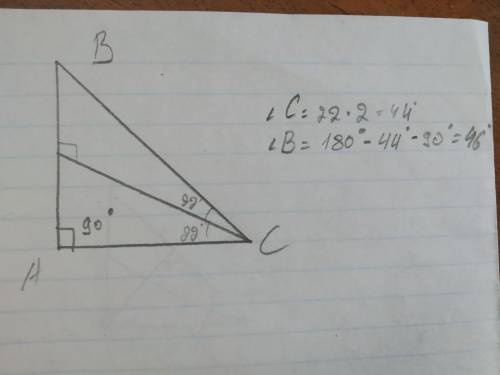 B
∠C = 22 · 2 = 44°
∠B = 180° - 44° - 90° = 46°
22°
90°
22°
C
A